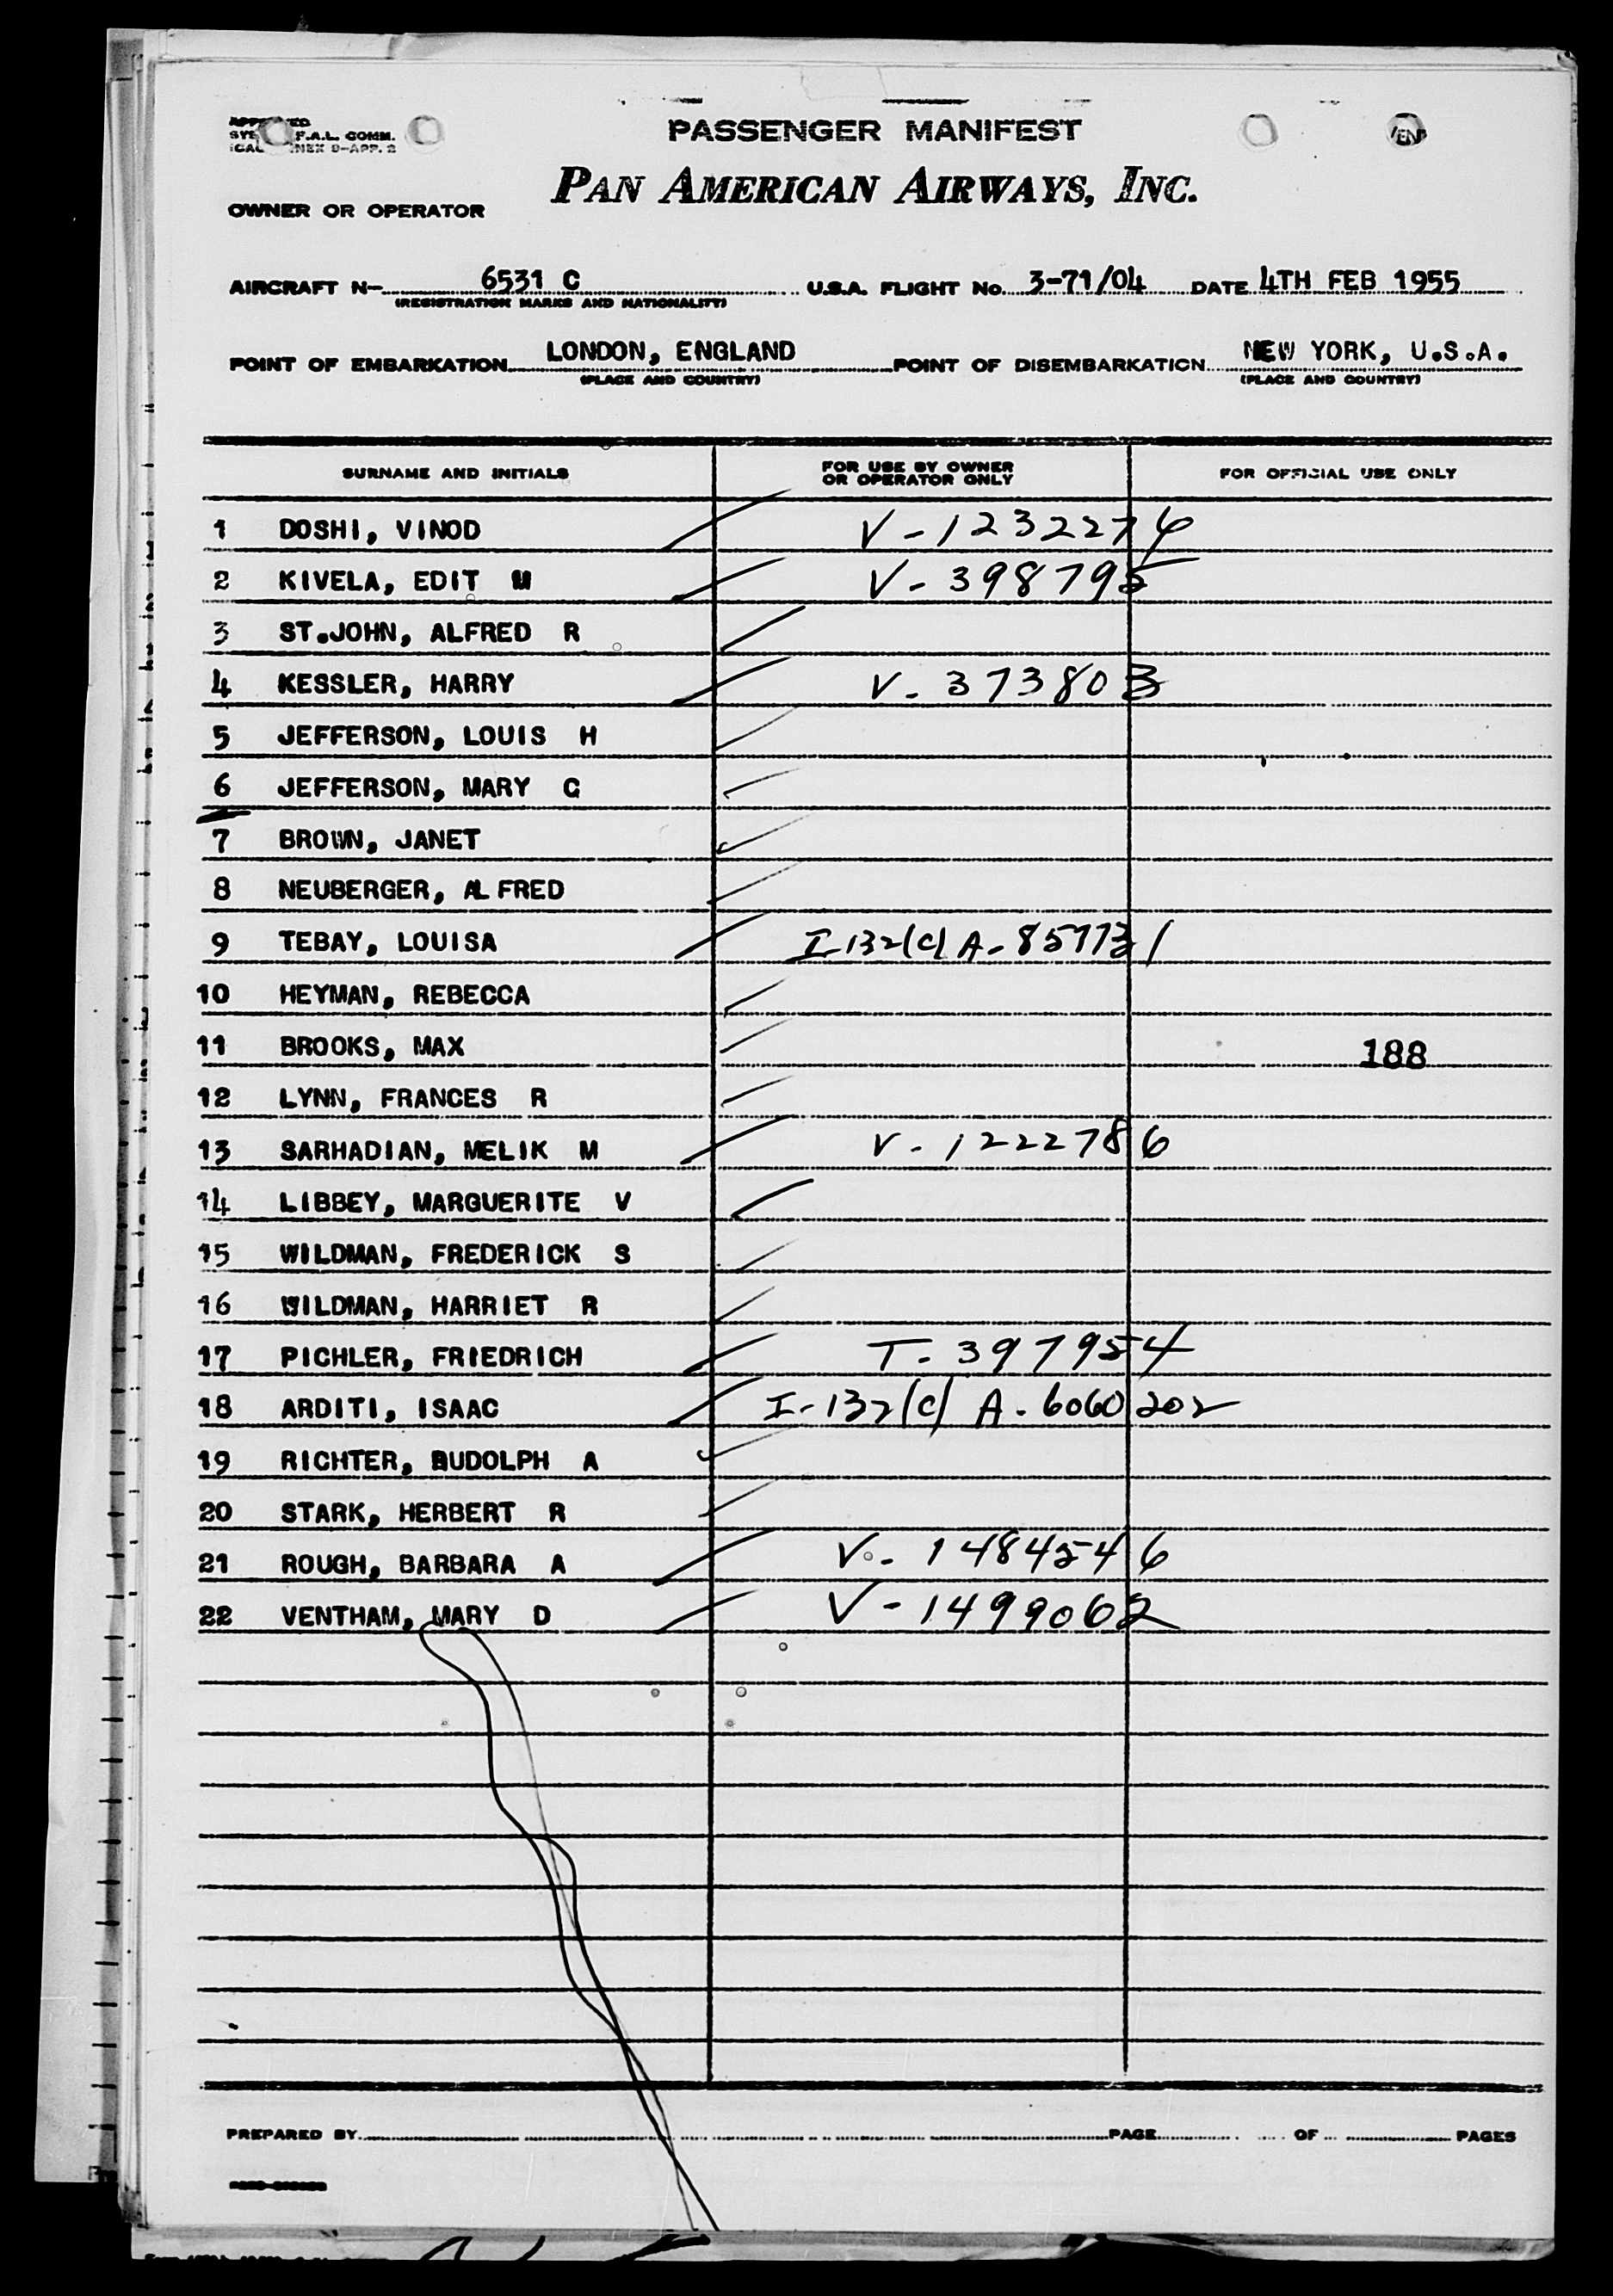 PASSENGER MANIFEST
F.A.L. COMM.
9-APP. 2
PAN AMERICAN AIRWAYS, INC.
OWNER OR OPERATOR
AIRCRAFT N- 6531 C U.S.A. FLIGHT No. 3-71/04 DATE 4TH FEB 1955
(REGISTRATION MARKS AND NATIONALITY)
POINT OF EMBARKATION LONDON, ENGLAND POINT OF DISEMBARKATION NEW YORK, U.S.A.
(PLACE AND COUNTRY) (PLACE AND COUNTRY)
SURNAME AND INITIALS FOR USE BY OWNER OR OPERATOR ONLY FOR OFFICIAL USE ONLY
1 DOSHI, VINOD V-1232276
2 KIVELA, EDIT M V-398795
3 ST.JOHN, ALFRED R
4 KESSLER, HARRY V-373803
5 JEFFERSON, LOUIS H
6 JEFFERSON, MARY C
7 BROWN, JANET
8 NEUBERGER, ALFRED
9 TEBAY, LOUISA I-132(C) A-857731
10 HEYMAN, REBECCA
11 BROOKS, MAX 188
12 LYNN, FRANCES R
13 SARHADIAN, MELIK M V-1222786
14 LIBBEY, MARGUERITE V
15 WILDMAN, FREDERICK S
16 WILDMAN, HARRIET R
17 PICHLER, FRIEDRICH T-397954
18 ARDITI, ISAAC I-132(C) A-6060202
19 RICHTER, RUDOLPH A
20 STARK, HERBERT R
21 ROUGH, BARBARA A V-1484546
22 VENTHAM, MARY D V-1499062
PREPARED BY PAGE OF PAGES